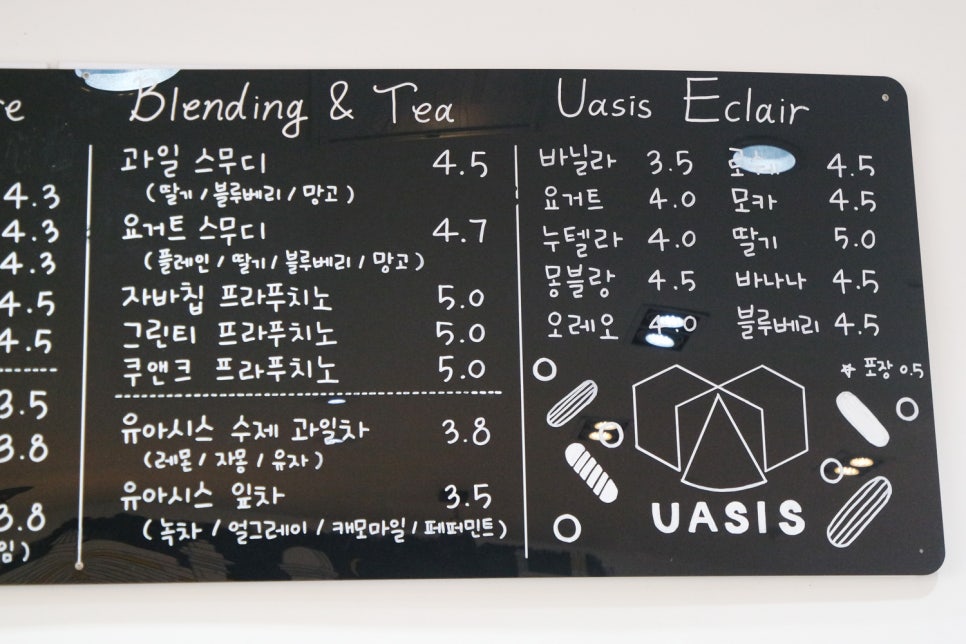 re
4.3
4.3
4.3
4.5
4.5
3.5
3.8
3.8
임)
Blending & Tea
과일 스무디 4.5
(딸기 / 블루베리 / 망고)
요거트 스무디 4.7
(플레인 / 딸기 / 블루베리 / 망고)
자바칩 프라푸치노 5.0
그린티 프라푸치노 5.0
쿠앤크 프라푸치노 5.0
유아시스 수제 과일차 3.8
(레몬 / 자몽 / 유자)
유아시스 잎차 3.5
(녹차 / 얼그레이 / 캐모마일 / 페퍼민트)
Uasis Eclair
바닐라 3.5
요거트 4.0
누텔라 4.0
몽블랑 4.5
오레오 4.0
4.5
모카 4.5
딸기 5.0
바나나 4.5
블루베리 4.5
☆ 포장 0.5
UASIS